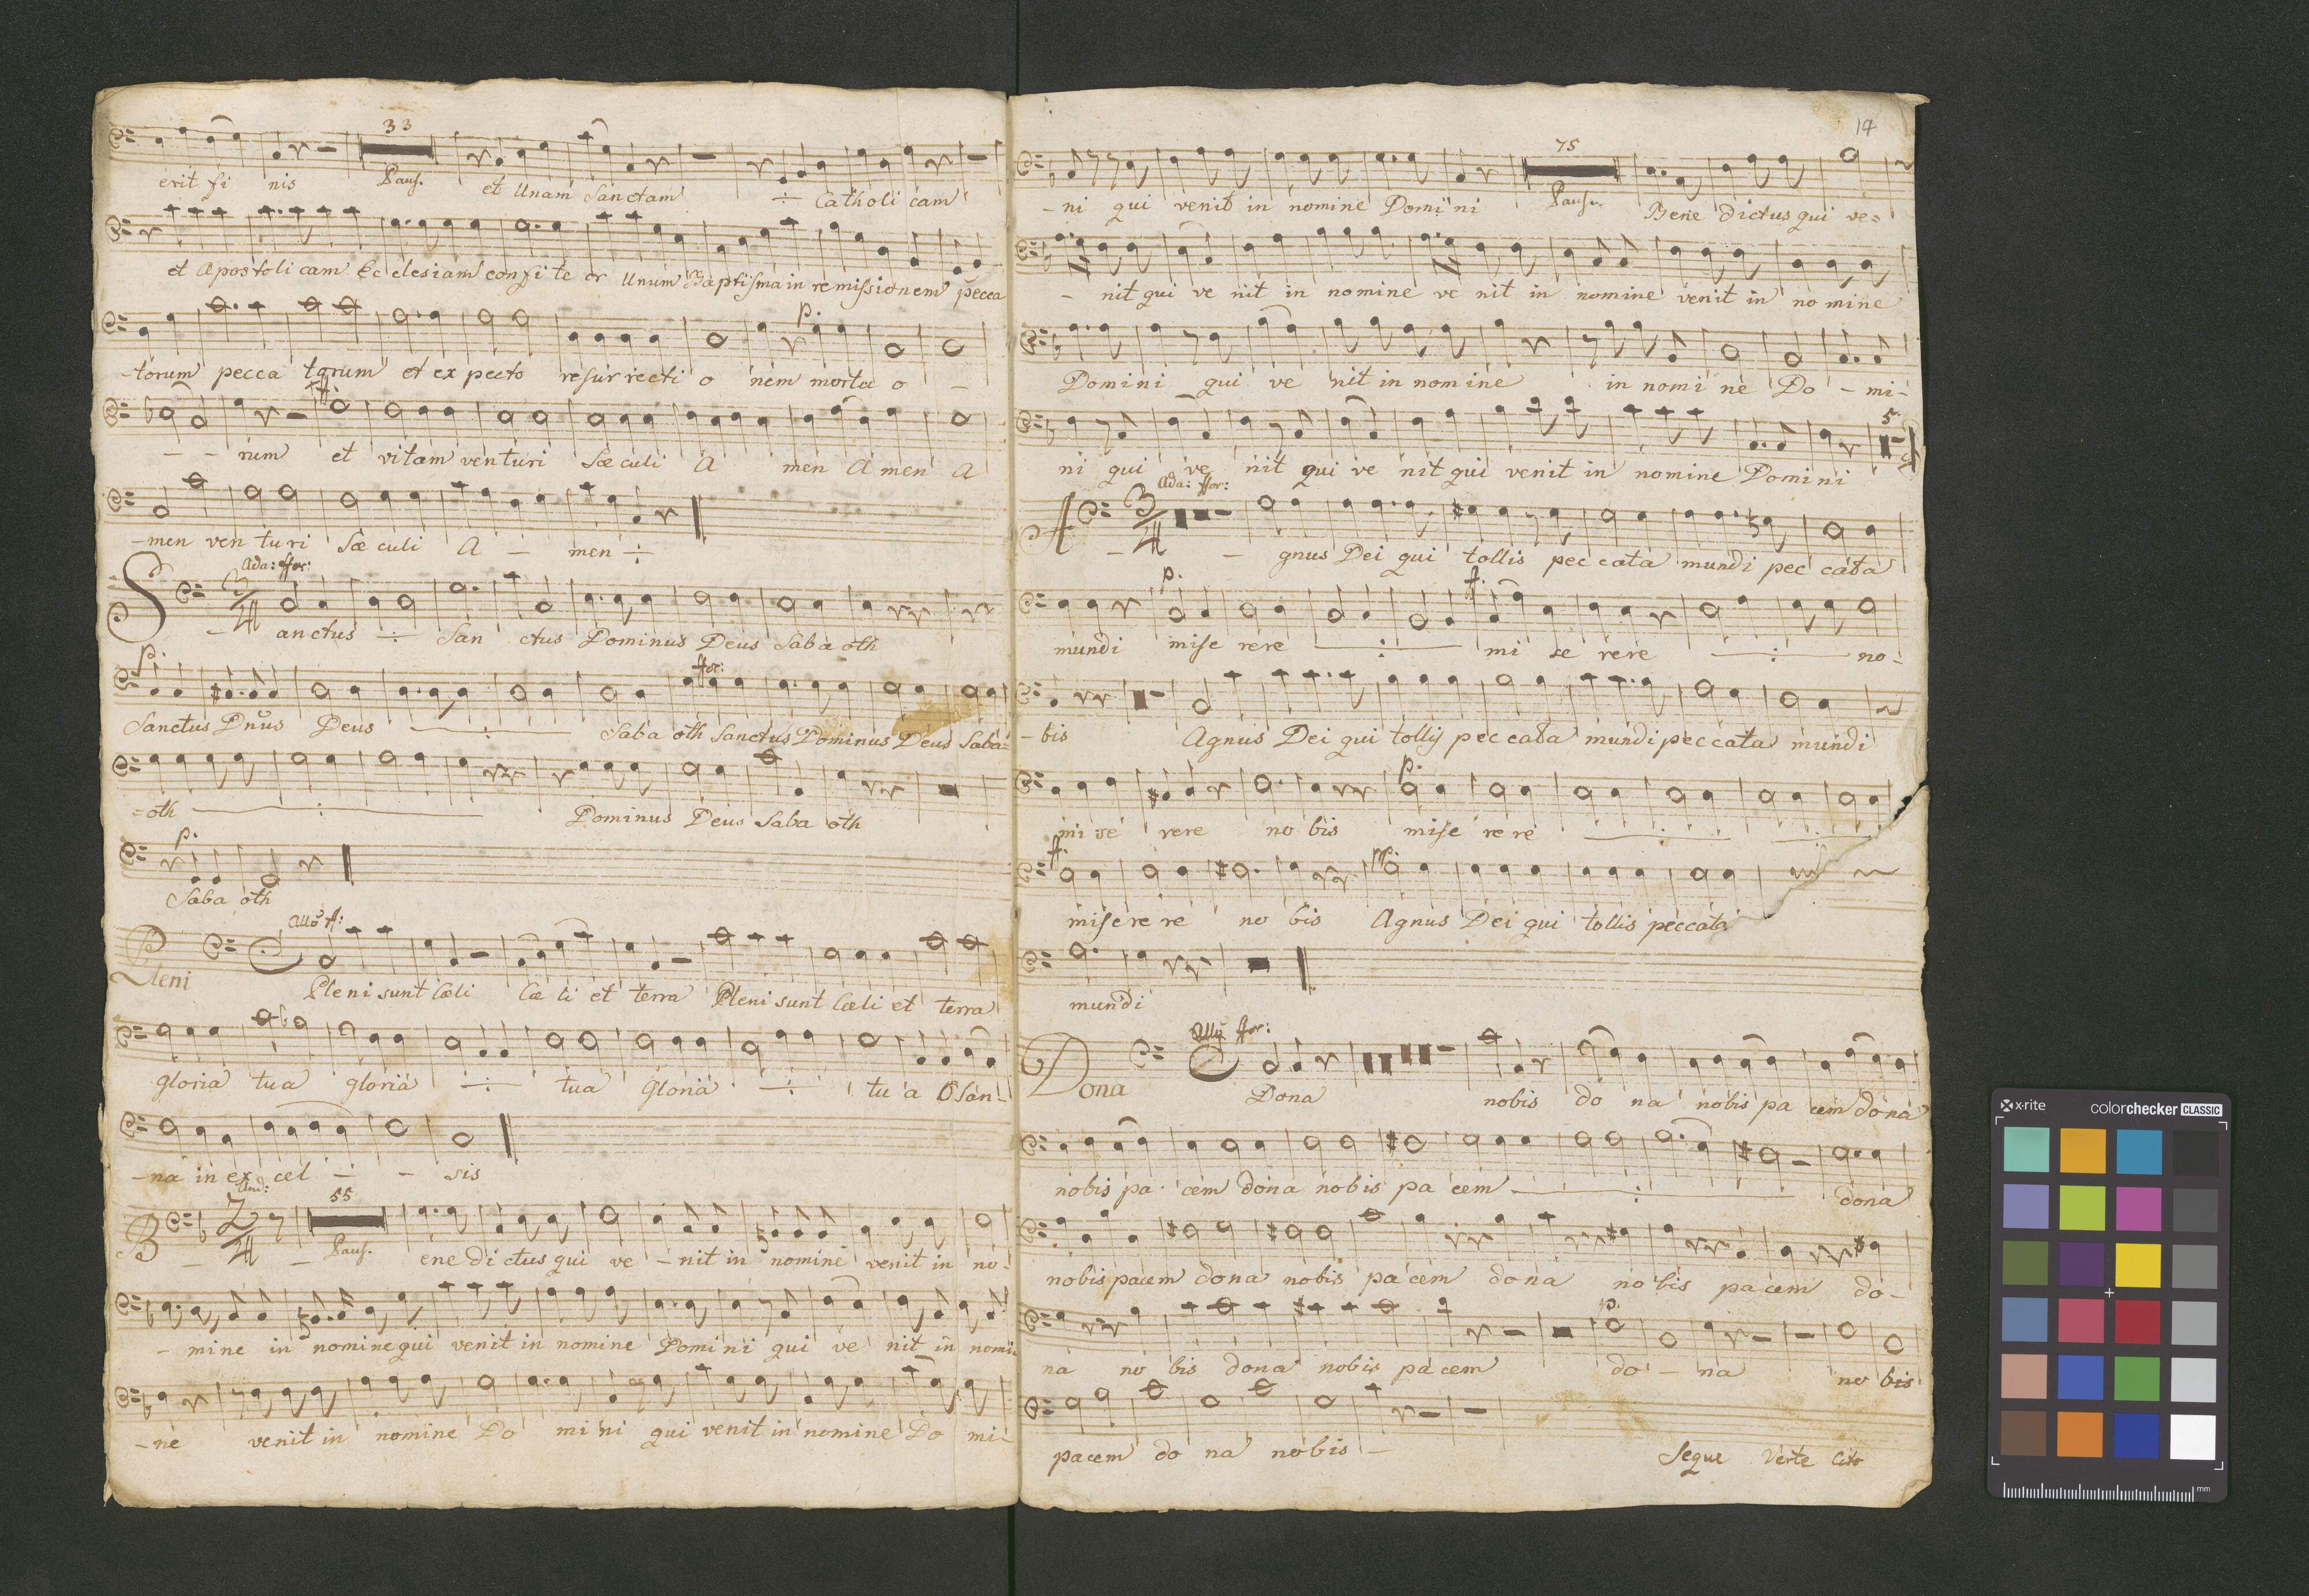 33
erit fi nis Paus. et Unam Sanctam Catholi cam
et Apostoli cam Ec clesiam confi te or Unum Baptisma in re missionem pecca
p.
-torum pecca torum et ex pecto resur recti o nem mortu o -
ff
- - rum et vitam venturi Sæ culi A men A men A
-men ven tu ri Sæ culi A - men
Ada: ffor:
S 3/4 anctus San ctus Dominus Deus Saba oth
p. ffor:
Sanctus Dnus Deus Saba oth Sanctus Dominus Deus Saba=
=oth Dominus Deus Saba oth
p.
Saba oth
Allo f:
Pleni Pleni sunt Cœli Cœ li et terra Pleni sunt Cœli et terra
gloria tua gloria tua Gloria tu a Osan-
-na in ex cel - - sis
And: 55
B 2/4 Paus. ene di ctus qui ve - nit in nomine venit in no-
- mine in nomine qui venit in nomine Domi ni qui ve nit in nomi
-ne venit in nomine Do mi ni qui venit in nomine Do mi-
14
75
-ni qui venit in nomine Domi ni Paus. Bene dictus qui ve=
- nit qui ve nit in nomine ve nit in nomine venit in no mine
Domini qui ve nit in nomine in nomi ne Do - mi-
5
ni qui ve nit qui ve nit qui venit in nomine Domi ni
Ada: ffor:
A 3/4 - - gnus Dei qui tollis pec cata mundi pec cata
p. f.
mundi mise rere mi se rere no-
-bis Agnus Dei qui tollis pec cata mundi pec cata mundi
p.
mi se rere no bis mise re re
f. pp
misere re no bis Agnus Dei qui tollis peccata
mundi
Allo ffor:
Dona Dona nobis do na nobis pa cem dona
nobis pa cem dona nobis pa cem dona
nobis pacem dona nobis pa cem dona no bis pa cem do-
p.
na no bis dona nobis pa cem do - na no bis
pacem do na no bis -
Seque Verte Cito
x-rite colorchecker CLASSIC
mm